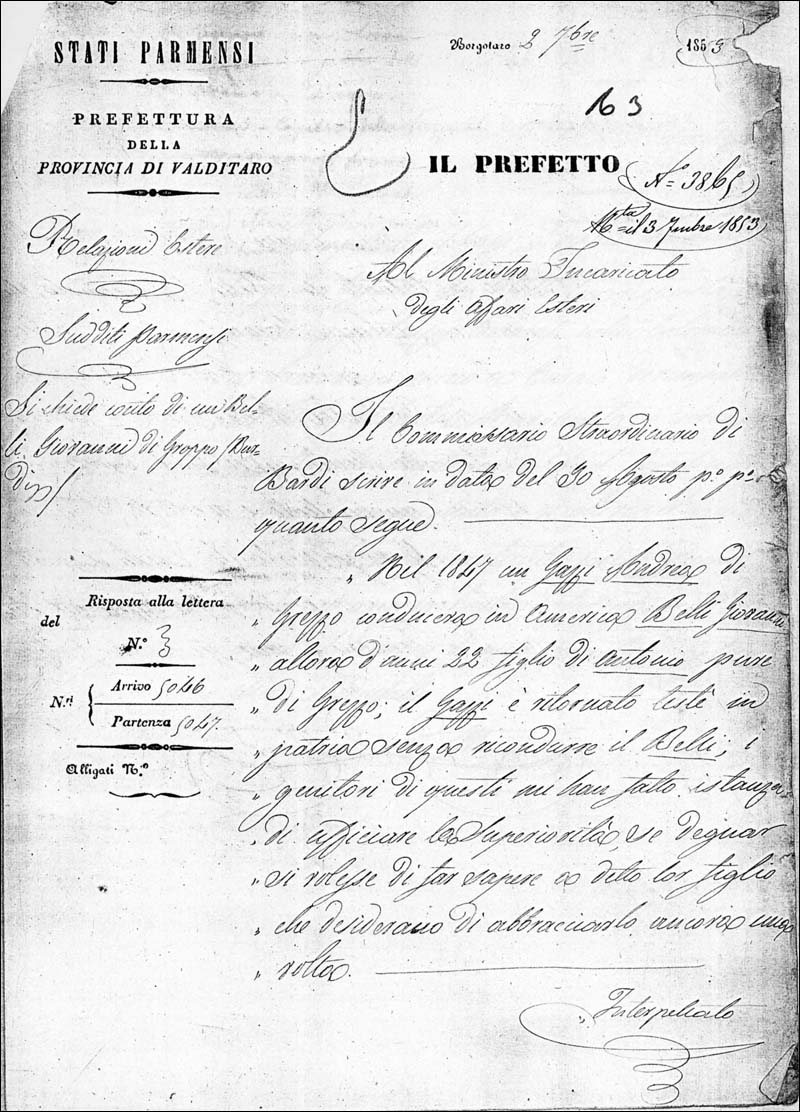 STATI PARMENSI
PREFETTURA
DELLA
PROVINCIA DI VALDITARO
Relazioni Estere
Sudditi Parmensi
Si chiede conto di un Bel-
li Giovanni di Groppo (Bar-
di)
Risposta alla lettera
del
N.º 3
N.ri
Arrivo 5046
Partenza 5047.
Alligati N.º
Borgotaro 2 7bre 1853
163
IL PREFETTO
Nº 3865
il 3 7mbre 1853
Al Ministro Incaricato
degli Affari Esteri
Il Commissario Straordinario di
Bardi scrive in data del 30 Agosto pº pº
quanto segue.
„ Nel 1847 un Gazzi Andrea di
„ Grezzo conduceva in America Belli Giovanni
„ allora d'anni 22 figlio di Antonio pure
„ di Grezzo; il Gazzi è ritornato testè in
„ patria senza ricondurre il Belli; i
„ genitori di questi mi han fatto istanza
„ di ufficiare la Superiorità se degnar
„ si volesse di far sapere a detto lor figlio
„ che desiderano di abbracciarlo ancora una
„ volta.
„ Interpellato